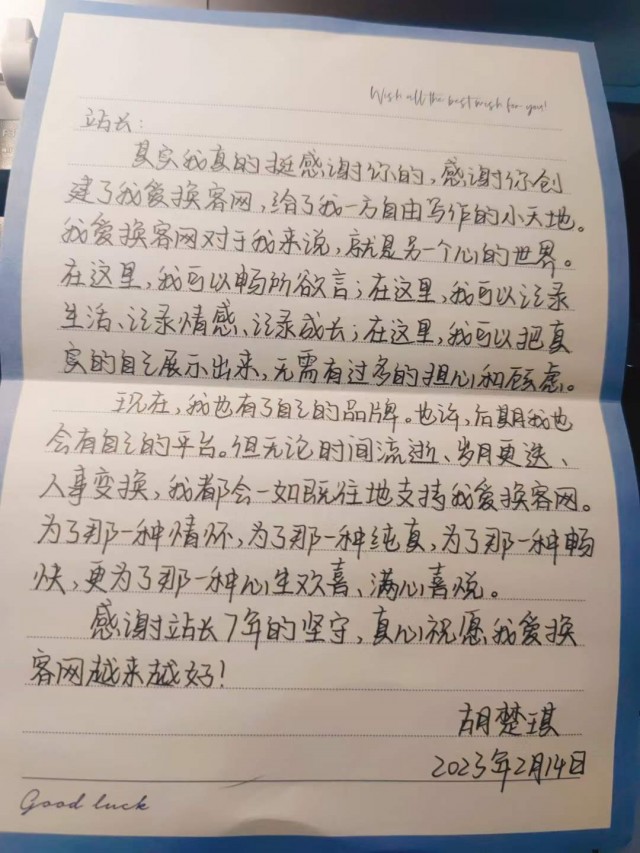 Wish all the best wish for you!
站长：
其实我真的挺感谢你的，感谢你创
建了我爱换客网，给了我一方自由写作的小天地。
我爱换客网对于我来说，就是另一个心的世界。
在这里，我可以畅所欲言；在这里，我可以记录
生活、记录情感、记录成长；在这里，我可以把真
实的自己展示出来，无需有过多的担心和顾虑。
现在，我也有了自己的品牌。也许，后期我也
会有自己的平台。但无论时间流逝、岁月更迭、
人事变换，我都会一如既往地支持我爱换客网。
为了那一种情怀，为了那一种纯真，为了那一种畅
快，更为了那一种心生欢喜、满心喜悦。
感谢站长7年的坚守，真心祝愿我爱换
客网越来越好！
胡楚琪
2023年2月14日
Good luck